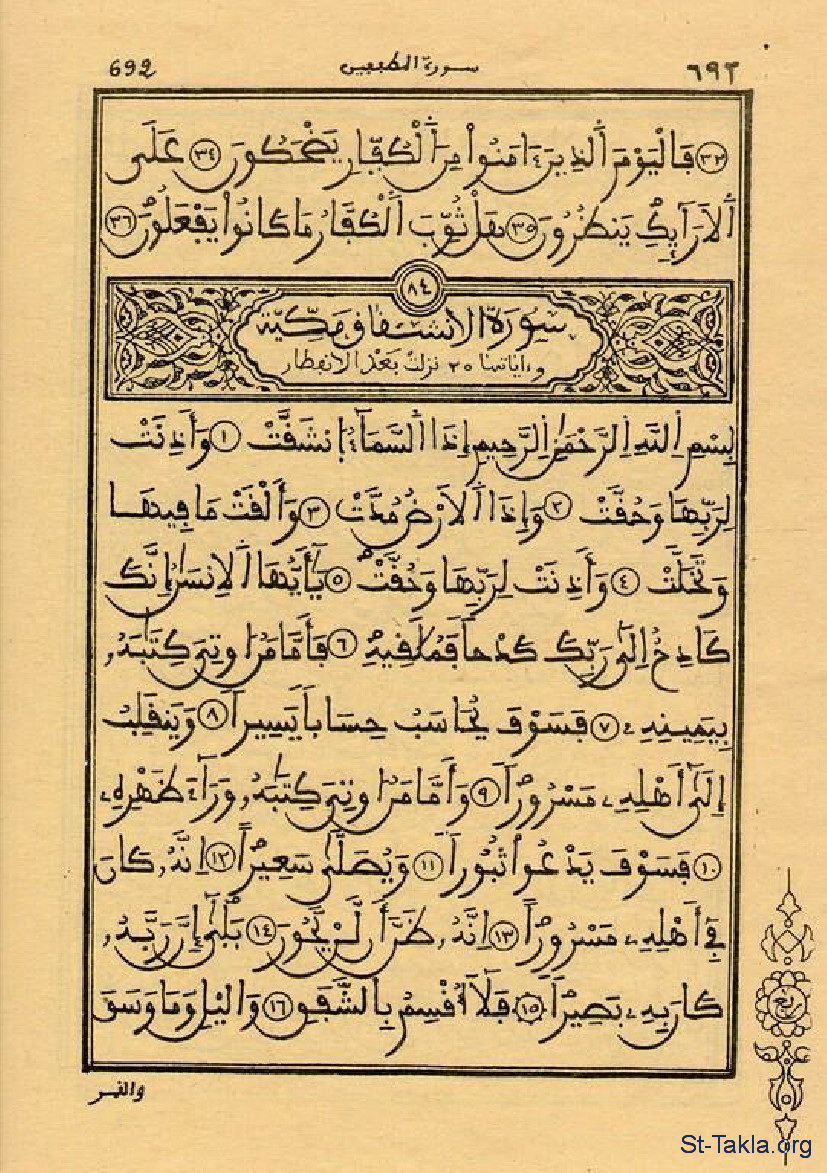 692 سورة المطففين ٦٩٢
٣٣ فَالْيَوْمَ اَ۬لذِينَ ءَامَنُواْ مِنَ اَ۬لْكُفّ۪ارِ يَضْحَكُونَ ٣٤ عَلَى
اَ۬لَارَآئِكِ يَنظُرُونَ ٣٥ هَلْ ثُوِّبَ اَ۬لْكُفَّارُ مَا كَانُواْ يَفْعَلُونَ ٣٦
٨٤
سورة الانشقاق مكية
وءاياتها ٢٥ نزلت بعد الانفطار
بِسْمِ اِ۬للَّهِ اِ۬لرَّحْمَٰنِ اِ۬لرَّحِيمِ إِذَا اَ۬لسَّمَآءُ اُ۪نشَقَّتْ ١ وَأَذِنَتْ
لِرَبِّهَا وَحُقَّتْ ٢ وَإِذَا اَ۬لَارْضُ مُدَّتْ ٣ وَأَلْقَتْ مَا فِيهَا
وَتَخَلَّتْ ٤ وَأَذِنَتْ لِرَبِّهَا وَحُقَّتْ ٥ يَٰٓأَيُّهَا اَ۬لِانسَٰنُ إِنَّكَ
كَادِحٌ إِلَىٰ رَبِّكَ كَدْحاً فَمُلَٰقِيهِ ٦ فَأَمَّا مَنُ ا۟وتِيَ كِتَٰبَهُۥ
بِيَمِينِهِۦ ٧ فَسَوْفَ يُحَاسَبُ حِسَاباً يَسِيراً ٨ وَيَنقَلِبُ
إِلَىٰٓ أَهْلِهِۦ مَسْرُوراً ٩ وَأَمَّا مَنُ ا۟وتِيَ كِتَٰبَهُۥ وَرَآءَ ظَهْرِهِۦ
١٠ فَسَوْفَ يَدْعُواْ ثُبُوراً ١١ وَيُصَلَّىٰ سَعِيراً ١٢ اِنَّهُۥ كَانَ
فِےٓ أَهْلِهِۦ مَسْرُوراً ١٣ اِنَّهُۥ ظَنَّ أَن لَّنْ يَّحُورَ ١٤ بَلَىٰٓ إِنَّ رَبَّهُۥ
كَانَ بِهِۦ بَصِيراً ١٥ فَلَآ أُقْسِمُ بِالشَّفَقِ ١٦ وَاليْلِ وَمَا وَسَقَ
والقمر
ربع
St-Takla.org